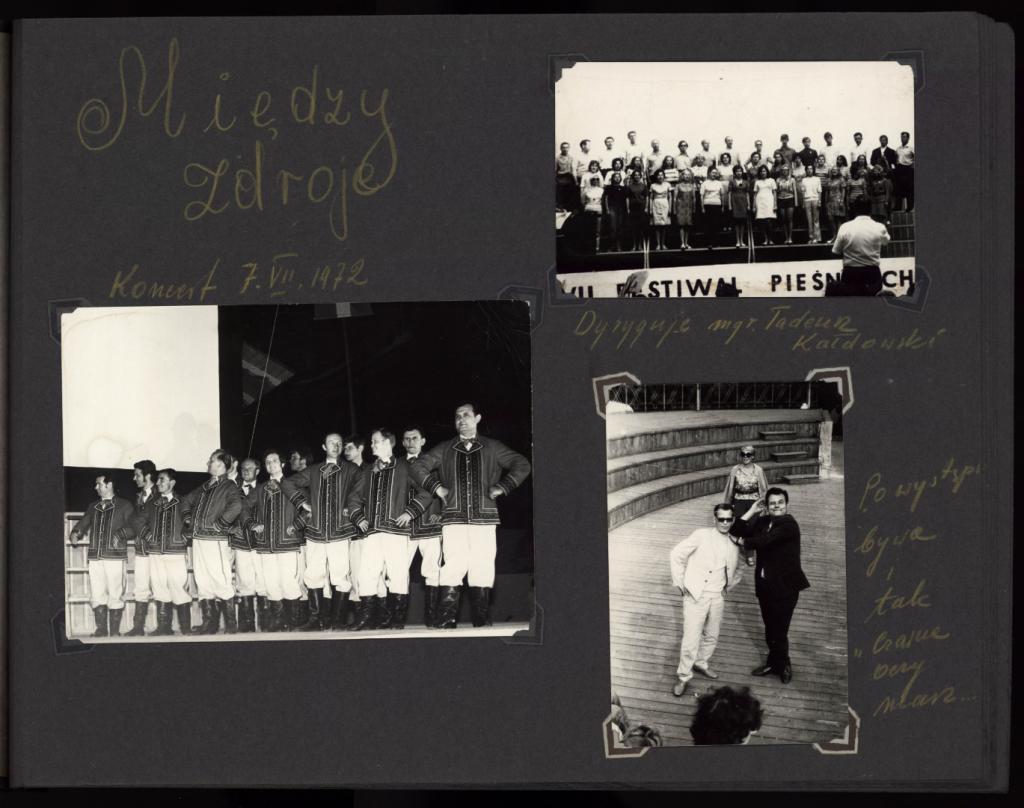 Między
zdroje
Koncert 7.VII.1972
VII FESTIWAL PIEŚN CH
Dyryguje mgr. Tadeusz
Kałdowski
Po występ
bywa
i
tak
"Czarne
oczy
masz...